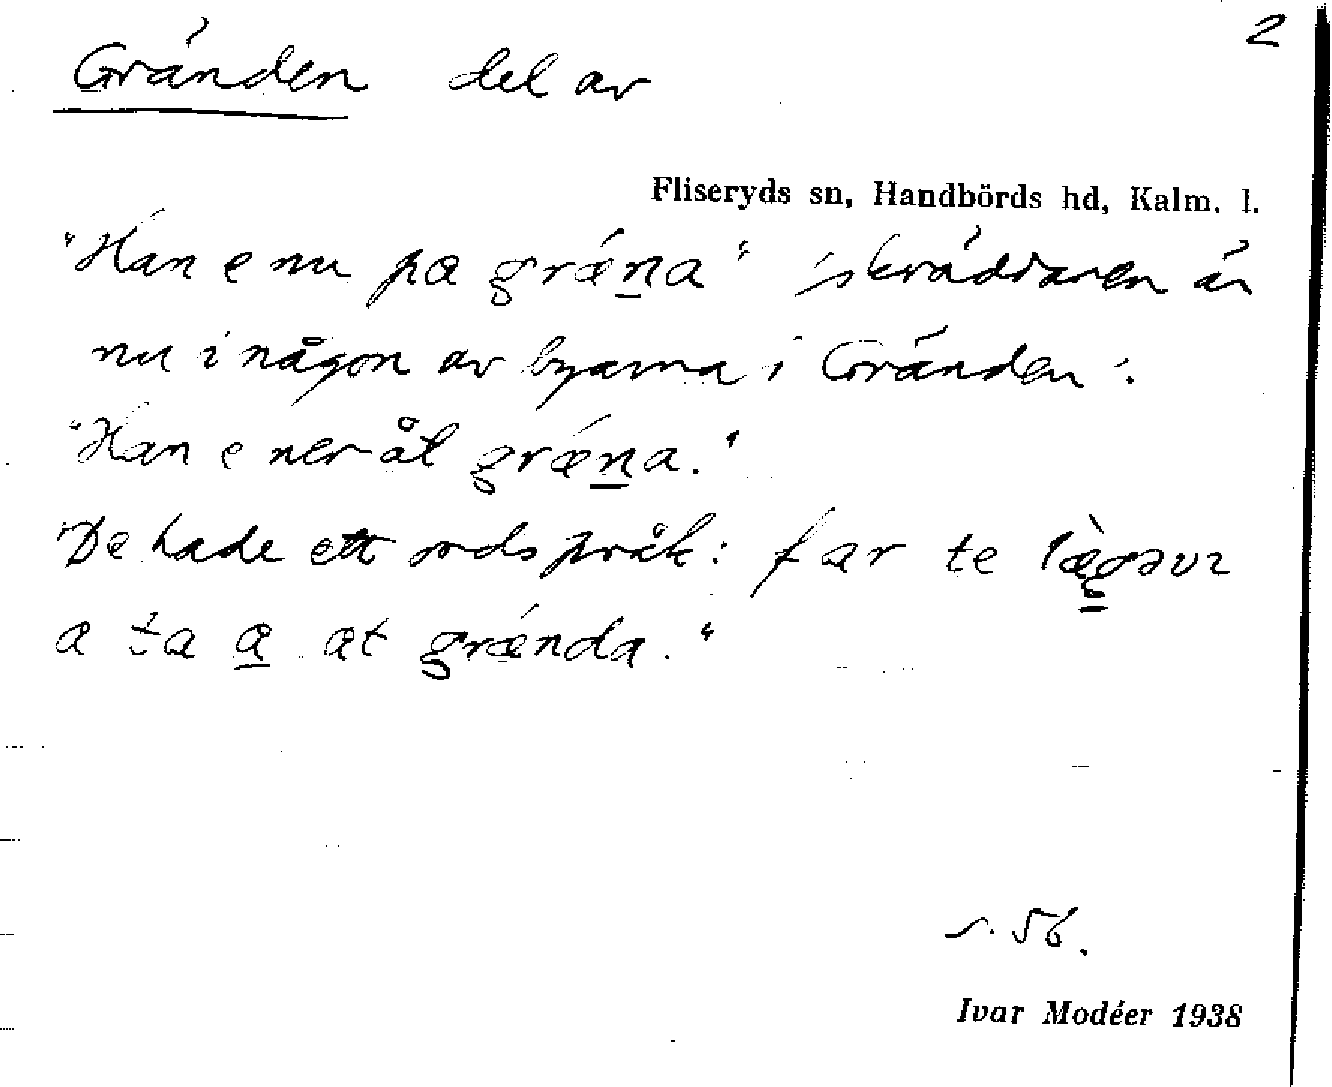 2
Gränden del av
Fliseryds sn, Handbörds hd, Kalm. l.
"Han e nu pa grǽna" 'skräddaren är
nu i någon av byarna i Gränden'.
"Han e neråt grǽna."
"De hade ett ordspråk: far te
a ta a at grǽnda."
s. 56.
Ivar Modéer 1938